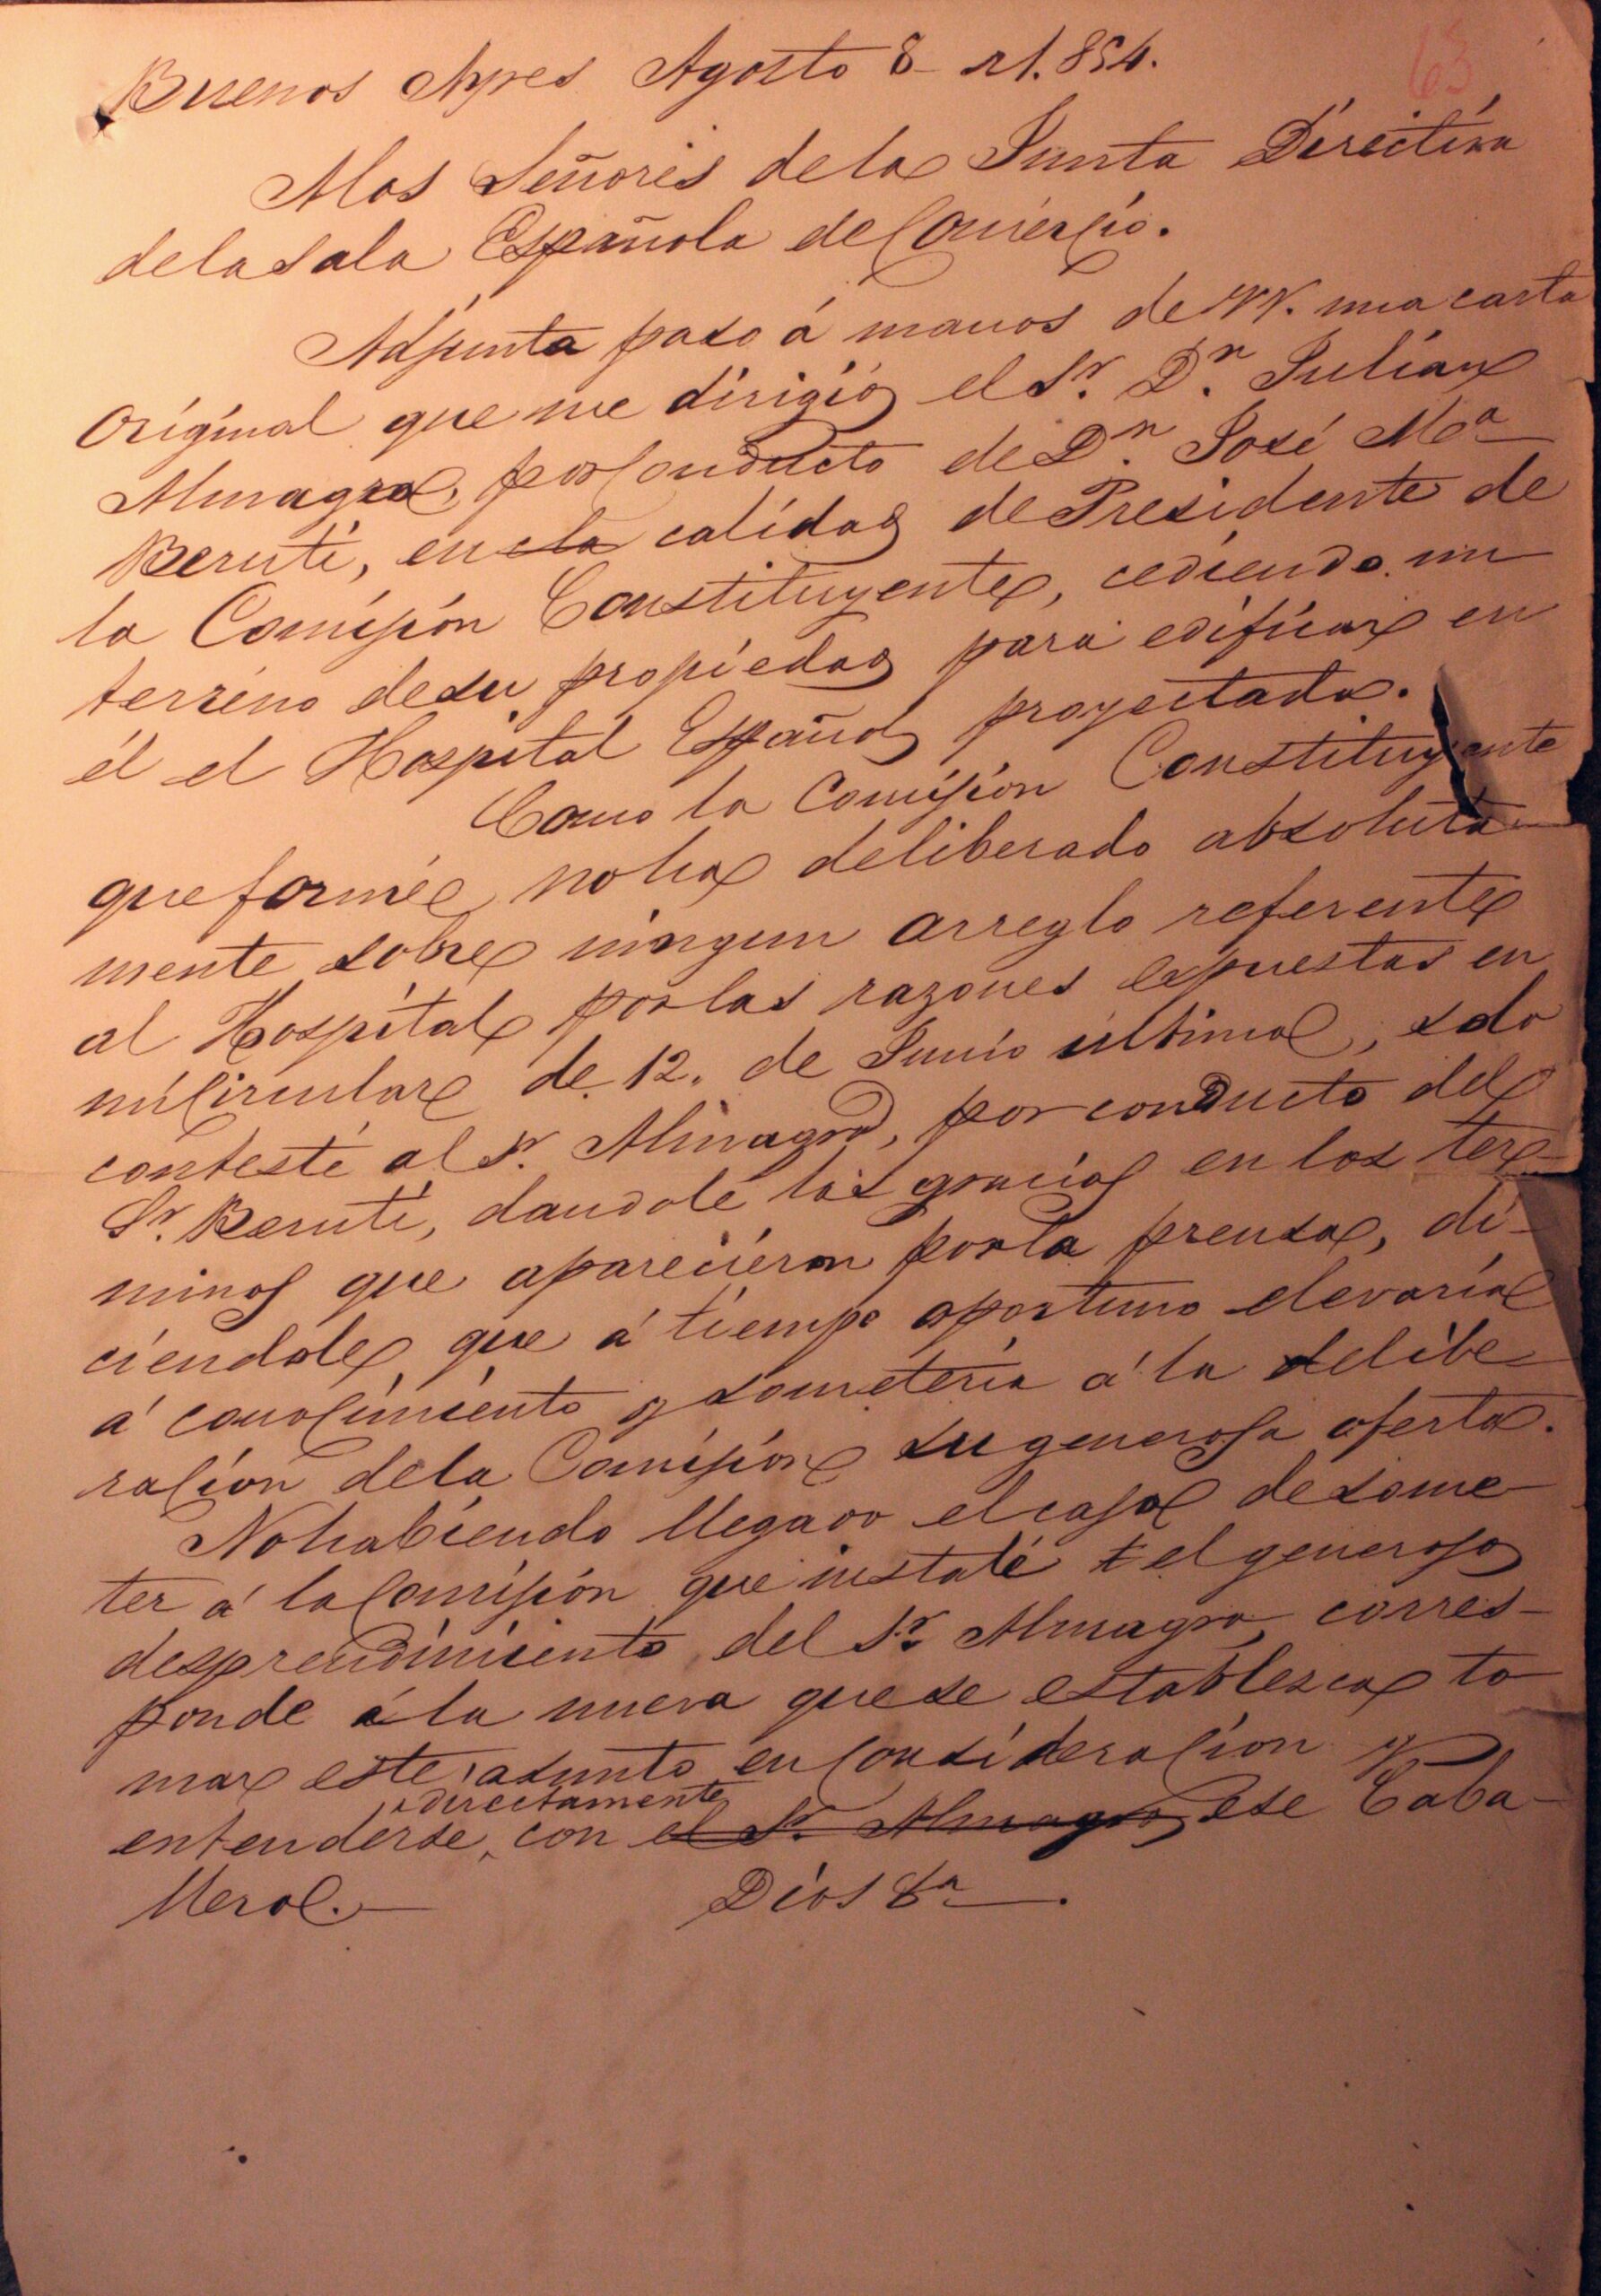 63
Buenos Ayres Agosto 8 - 1.854.
Alos Señores dela Junta Directiva
dela Sala Española de Comercio.
Adjunta paso á manos de VV. una carta
original que me dirigió el Sr. Dn. Julian
Almagro, por conducto de Dn. José Ma
Beruti, en la calidad de Presidente de
la Comisión Constituyente, cediendo un
terreno desu propiedad para edificar en
él el Hospital Español proyectado.
Como la Comisión Constituyente
que formé no ha deliberado absoluta-
mente sobre ningun arreglo referente
al Hospital por las razones expuestas en
mi Circular de 12. de Junio último, solo
contesté al Sr. Almagro, por conducto del
Sr. Beruti, dandole las gracias en los ter-
minos que aparecieron por la prensa, di-
ciendole que á tiempo oportuno elevaría
á conocimiento y sometería á la delibe-
ración dela Comisión su generosa oferta.
No habiendo llegado el caso de some-
ter á la Comisión que instalé el generoso
desprendimiento del Sr. Almagro, corres-
ponde á la nueva que se establesca to-
mar este asunto en Consideracion y
directamente
entenderse con el Sr. Almagro ese Caba-
llero.—
Dios &a —.